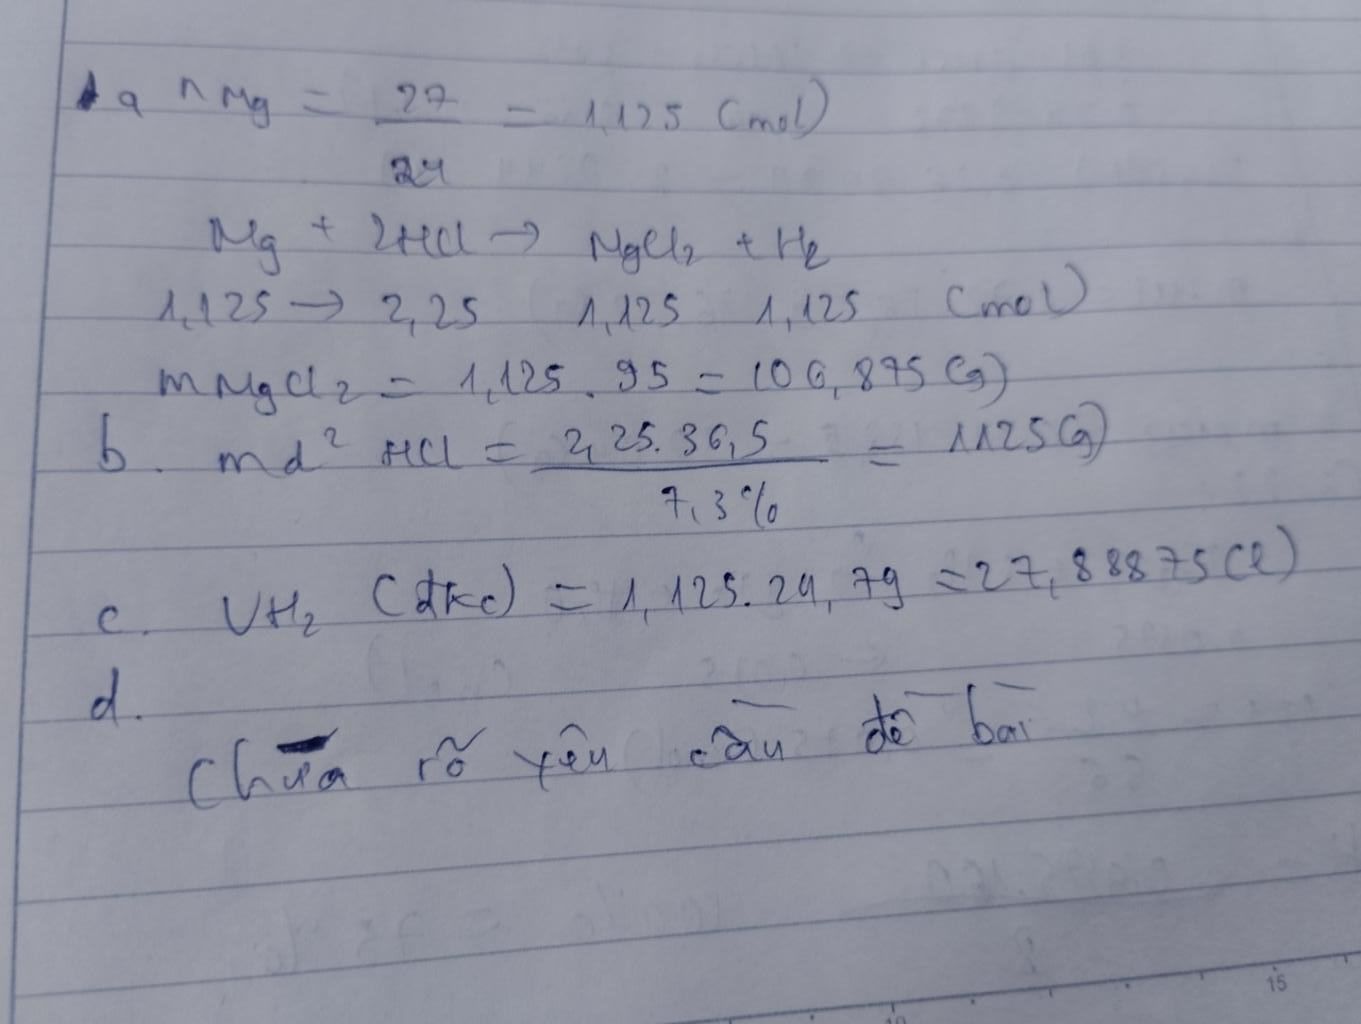 1a nMg = 27/24 = 1,125 (mol)
Mg + 2HCl → MgCl2 + H2
1,125 → 2,25 1,125 1,125 (mol)
mMgCl2 = 1,125 . 95 = 106,875 (g)
b. md² HCl = 2,25.36,5/7,3% = 1125 (g)
c. VH2 (đkc) = 1,125.24,79 = 27,88875 (l)
d.
Chưa rõ yêu cầu đề bài
15
10